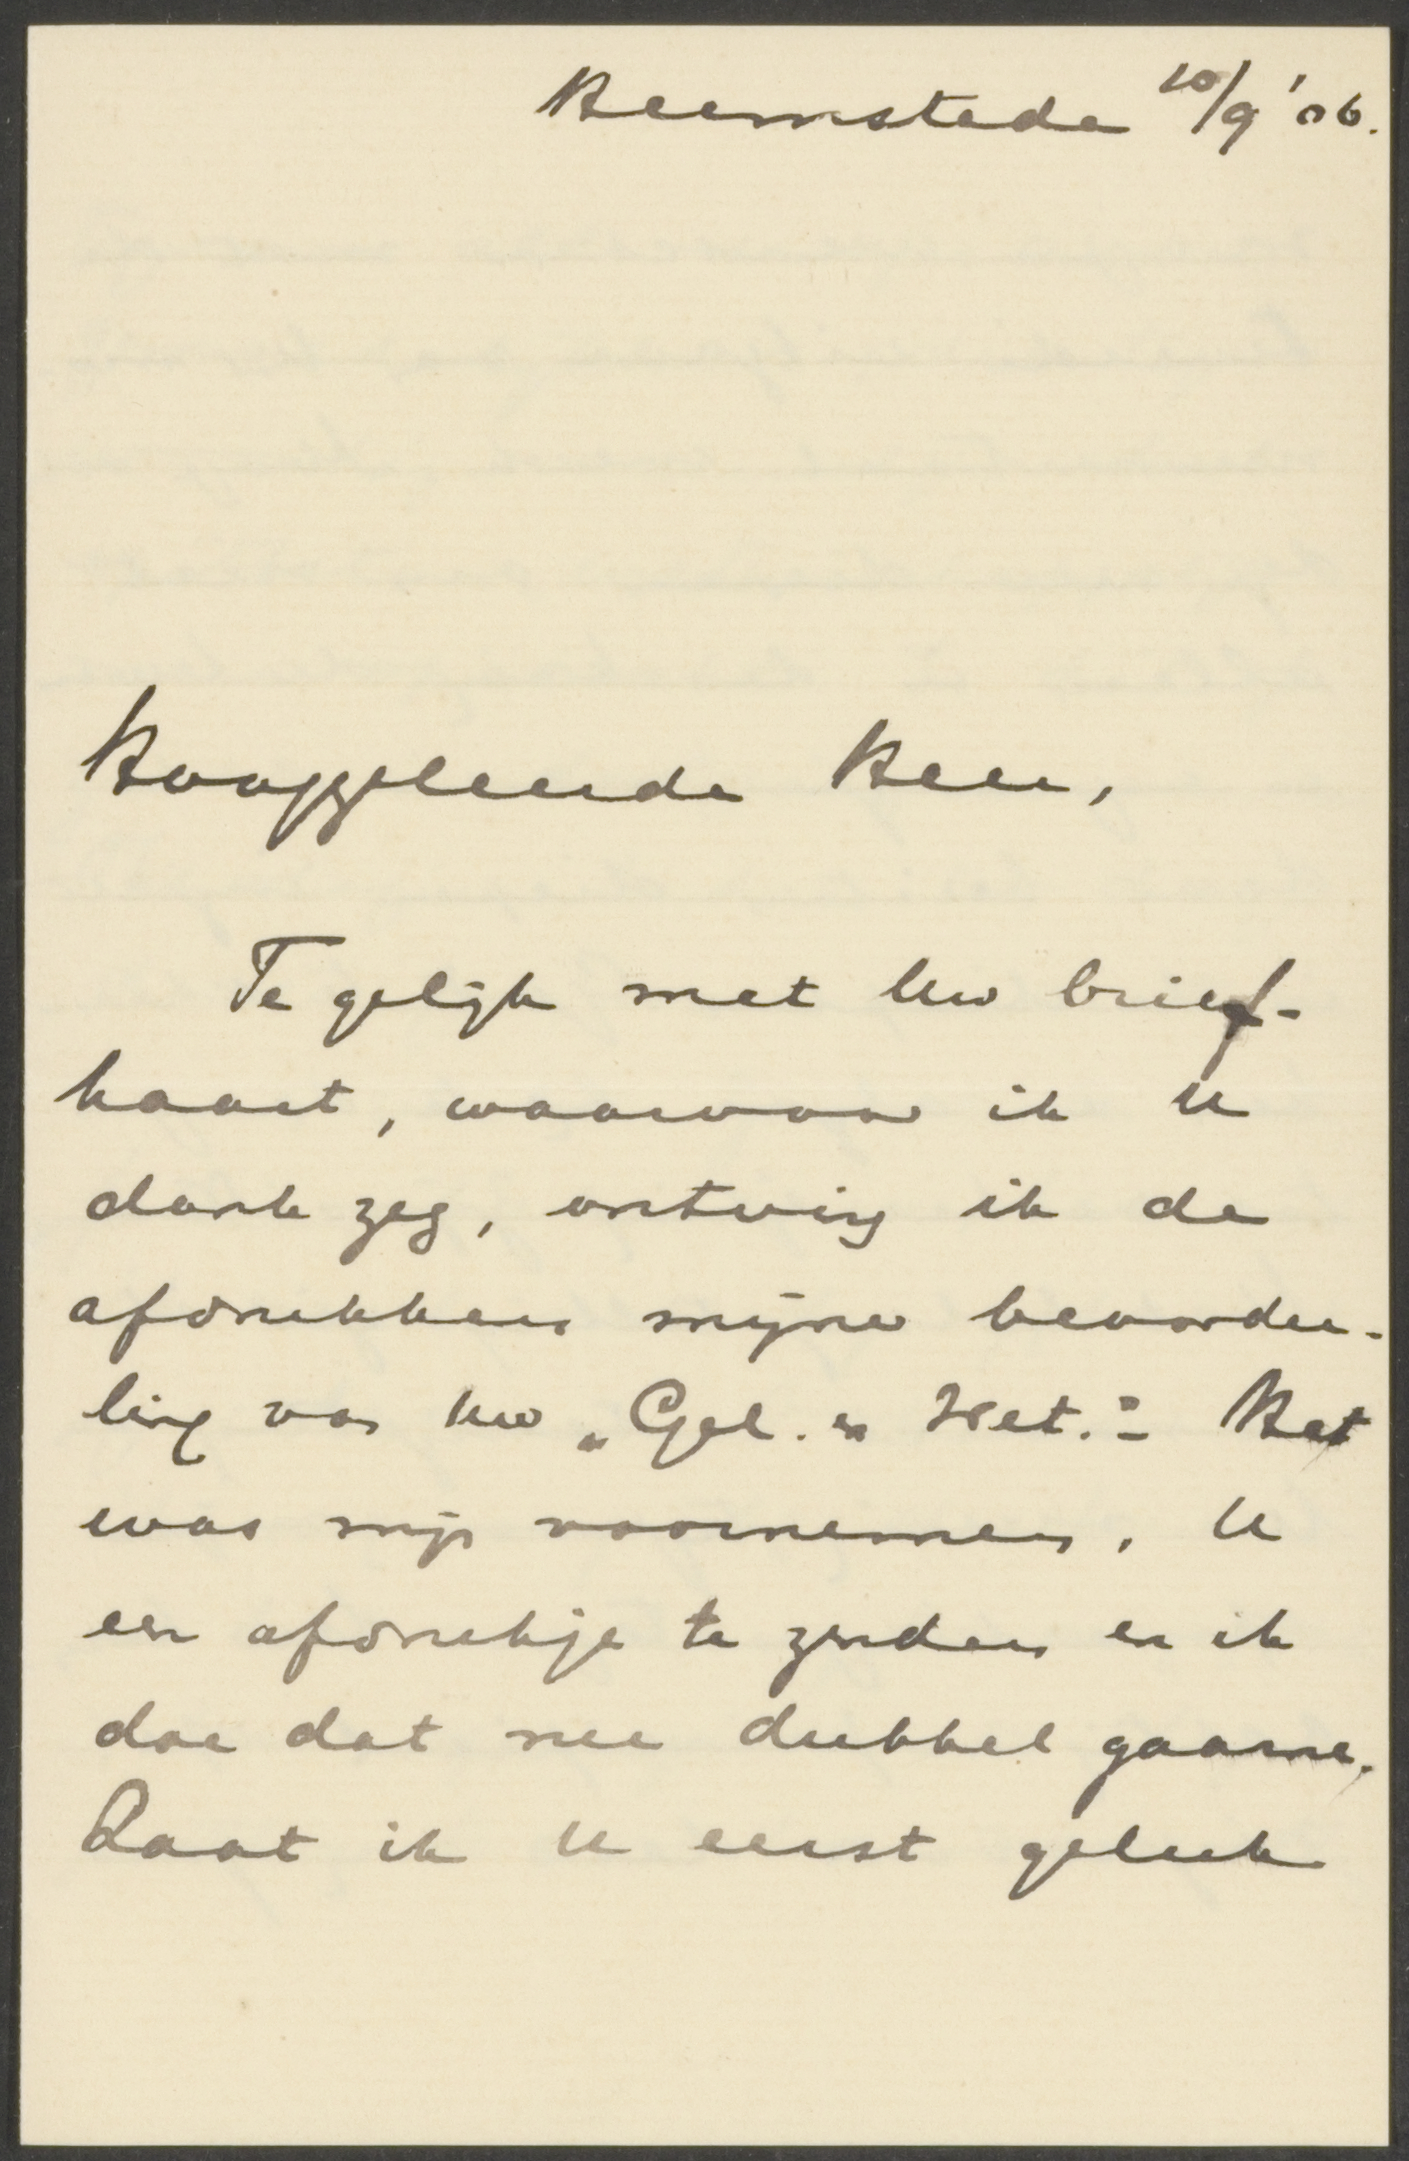 Heemstede 20/9 '06.
Hooggeleerde Heer,
Te gelijk met Uw brief-
kaart, waarvoor ik U
dank zeg, ontving ik de
afdrukken mijner beoordee-
ling van Uw „Gel. en Wet.". Het
was mijn voornemen, U
een afdrukje te zenden en ik
doe dat nu dubbel gaarne.
Laat ik U eerst geluk